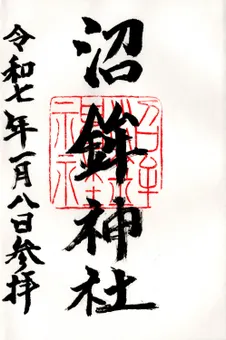 沼鉾神社
令和七年一月八日参拝